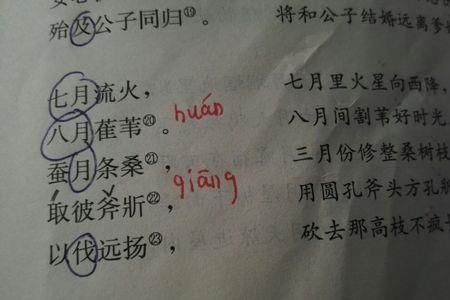 殆及公子同归⑲。 将和公子结婚远离爹
七月流火， 七月里火星向西降，
huán
八月萑苇⑳。 八月间割苇好时光
蚕月条桑㉑， 三月份修整桑树枝
qiāng
取彼斧斨㉒， 用圆孔斧头方孔斨
以伐远扬㉓， 砍去那高枝不疯